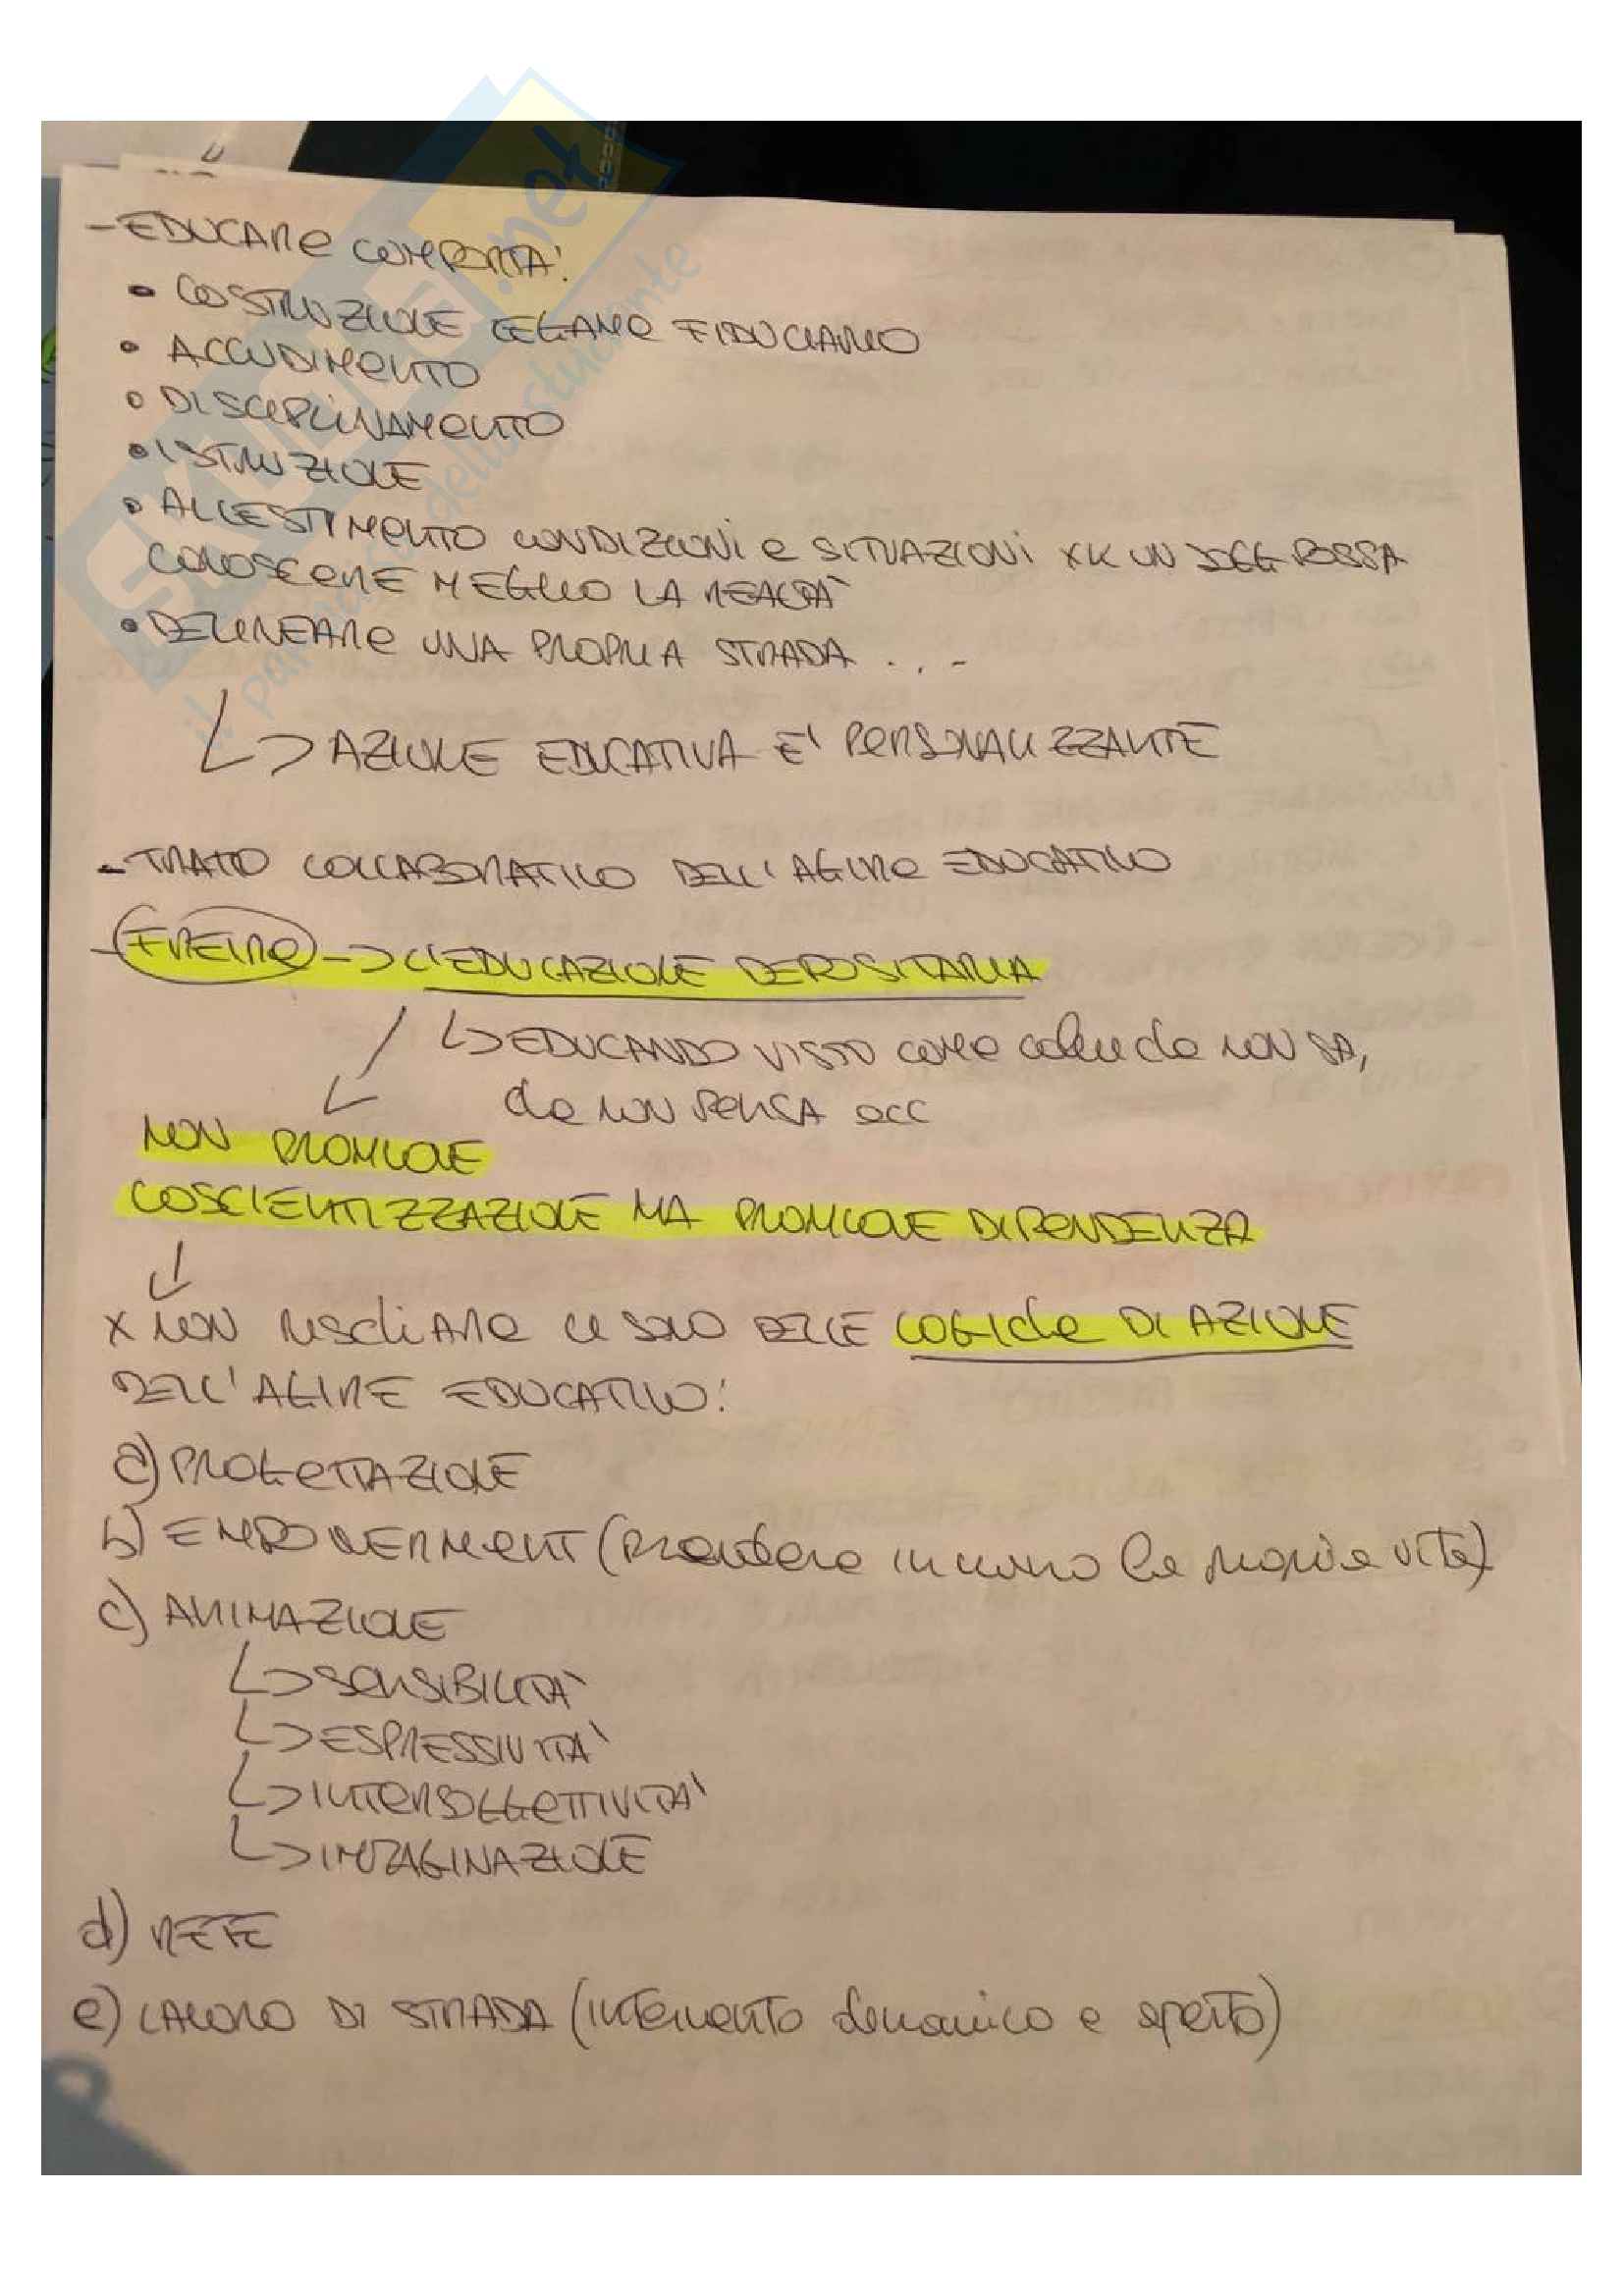 - EDUCARE COMPORTA:
• COSTRUZIONE LEGAME FIDUCIARIO
• ACCUDIMENTO
• DISCIPLINAMENTO
• ISTRUZIONE
• ALLESTIMENTO CONDIZIONI e SITUAZIONI XK UN SOGG POSSA
CONOSCERE MEGLIO LA REALTÀ
• DELINEARE UNA PROPRIA STRADA . . .
↳ AZIONE EDUCATIVA E' PERSONALIZZANTE
- TRATTO COLLABORATIVO DELL'AGIRE EDUCATIVO
- FREIRE -> L'EDUCAZIONE DEPOSITARIA
↳ EDUCANDO VISTO COME colui che NON SA,
che NON PENSA ecc
NON PROMUOVE
COSCIENTIZZAZIONE MA PROMUOVE DIPENDENZA
X NON RISCHIARE CI SONO DELLE LOGICHE DI AZIONE
DELL'AGIRE EDUCATIVO:
a) PROGETTAZIONE
b) EMPOWERMENT (prendere in mano la propria vita)
c) ANIMAZIONE
↳ SENSIBILITÀ
↳ ESPRESSIVITA'
↳ INTERSOGGETTIVITA'
↳ IMMAGINAZIONE
d) RETE
e) LAVORO DI STRADA (INTERVENTO dinamico e aperto)
SKUOLA.net
il paradiso dello studente